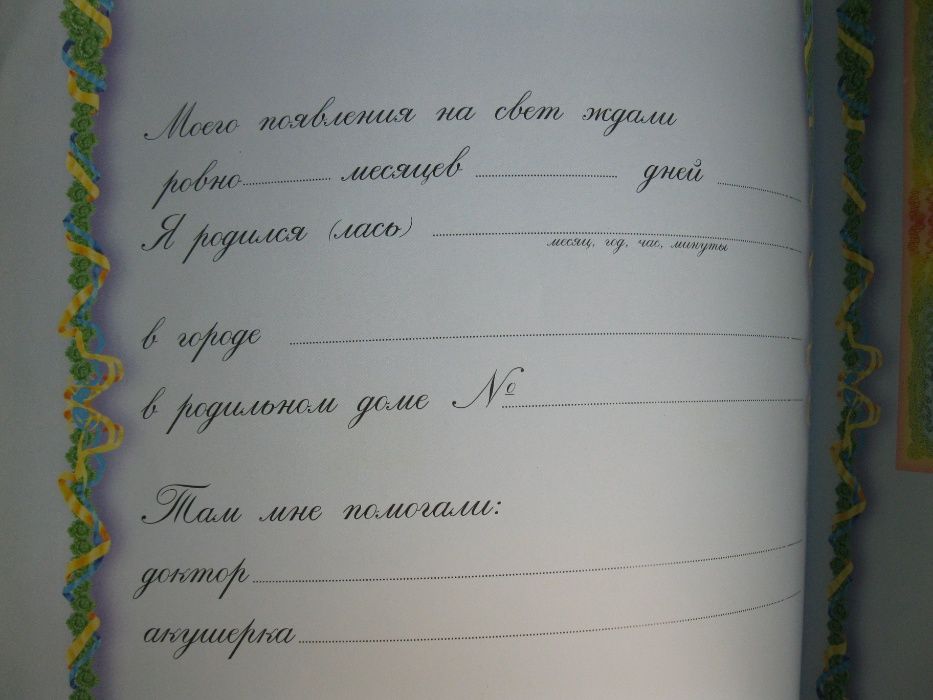 Моего появления на свет ждали
ровно.......... месяцев .......... дней ..........
Я родился (лась) ..........
месяц, год, час, минуты
в городе ..........
в родильном доме № ..........
Там мне помогали:
доктор ..........
акушерка ..........